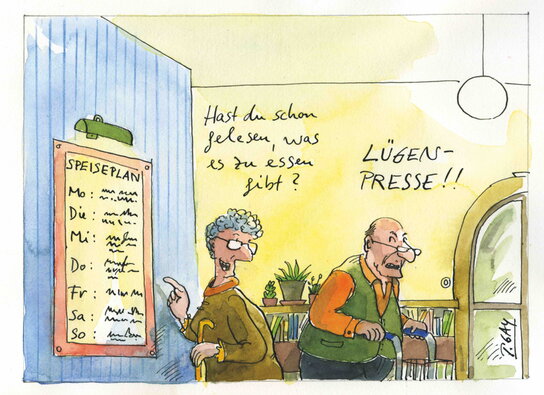 Hast du schon
gelesen, was
es zu essen
gibt?
LÜGEN-
PRESSE!!
SPEISEPLAN
Mo:
Die:
Mi:
Do:
Fr:
Sa:
So:
P. GAY